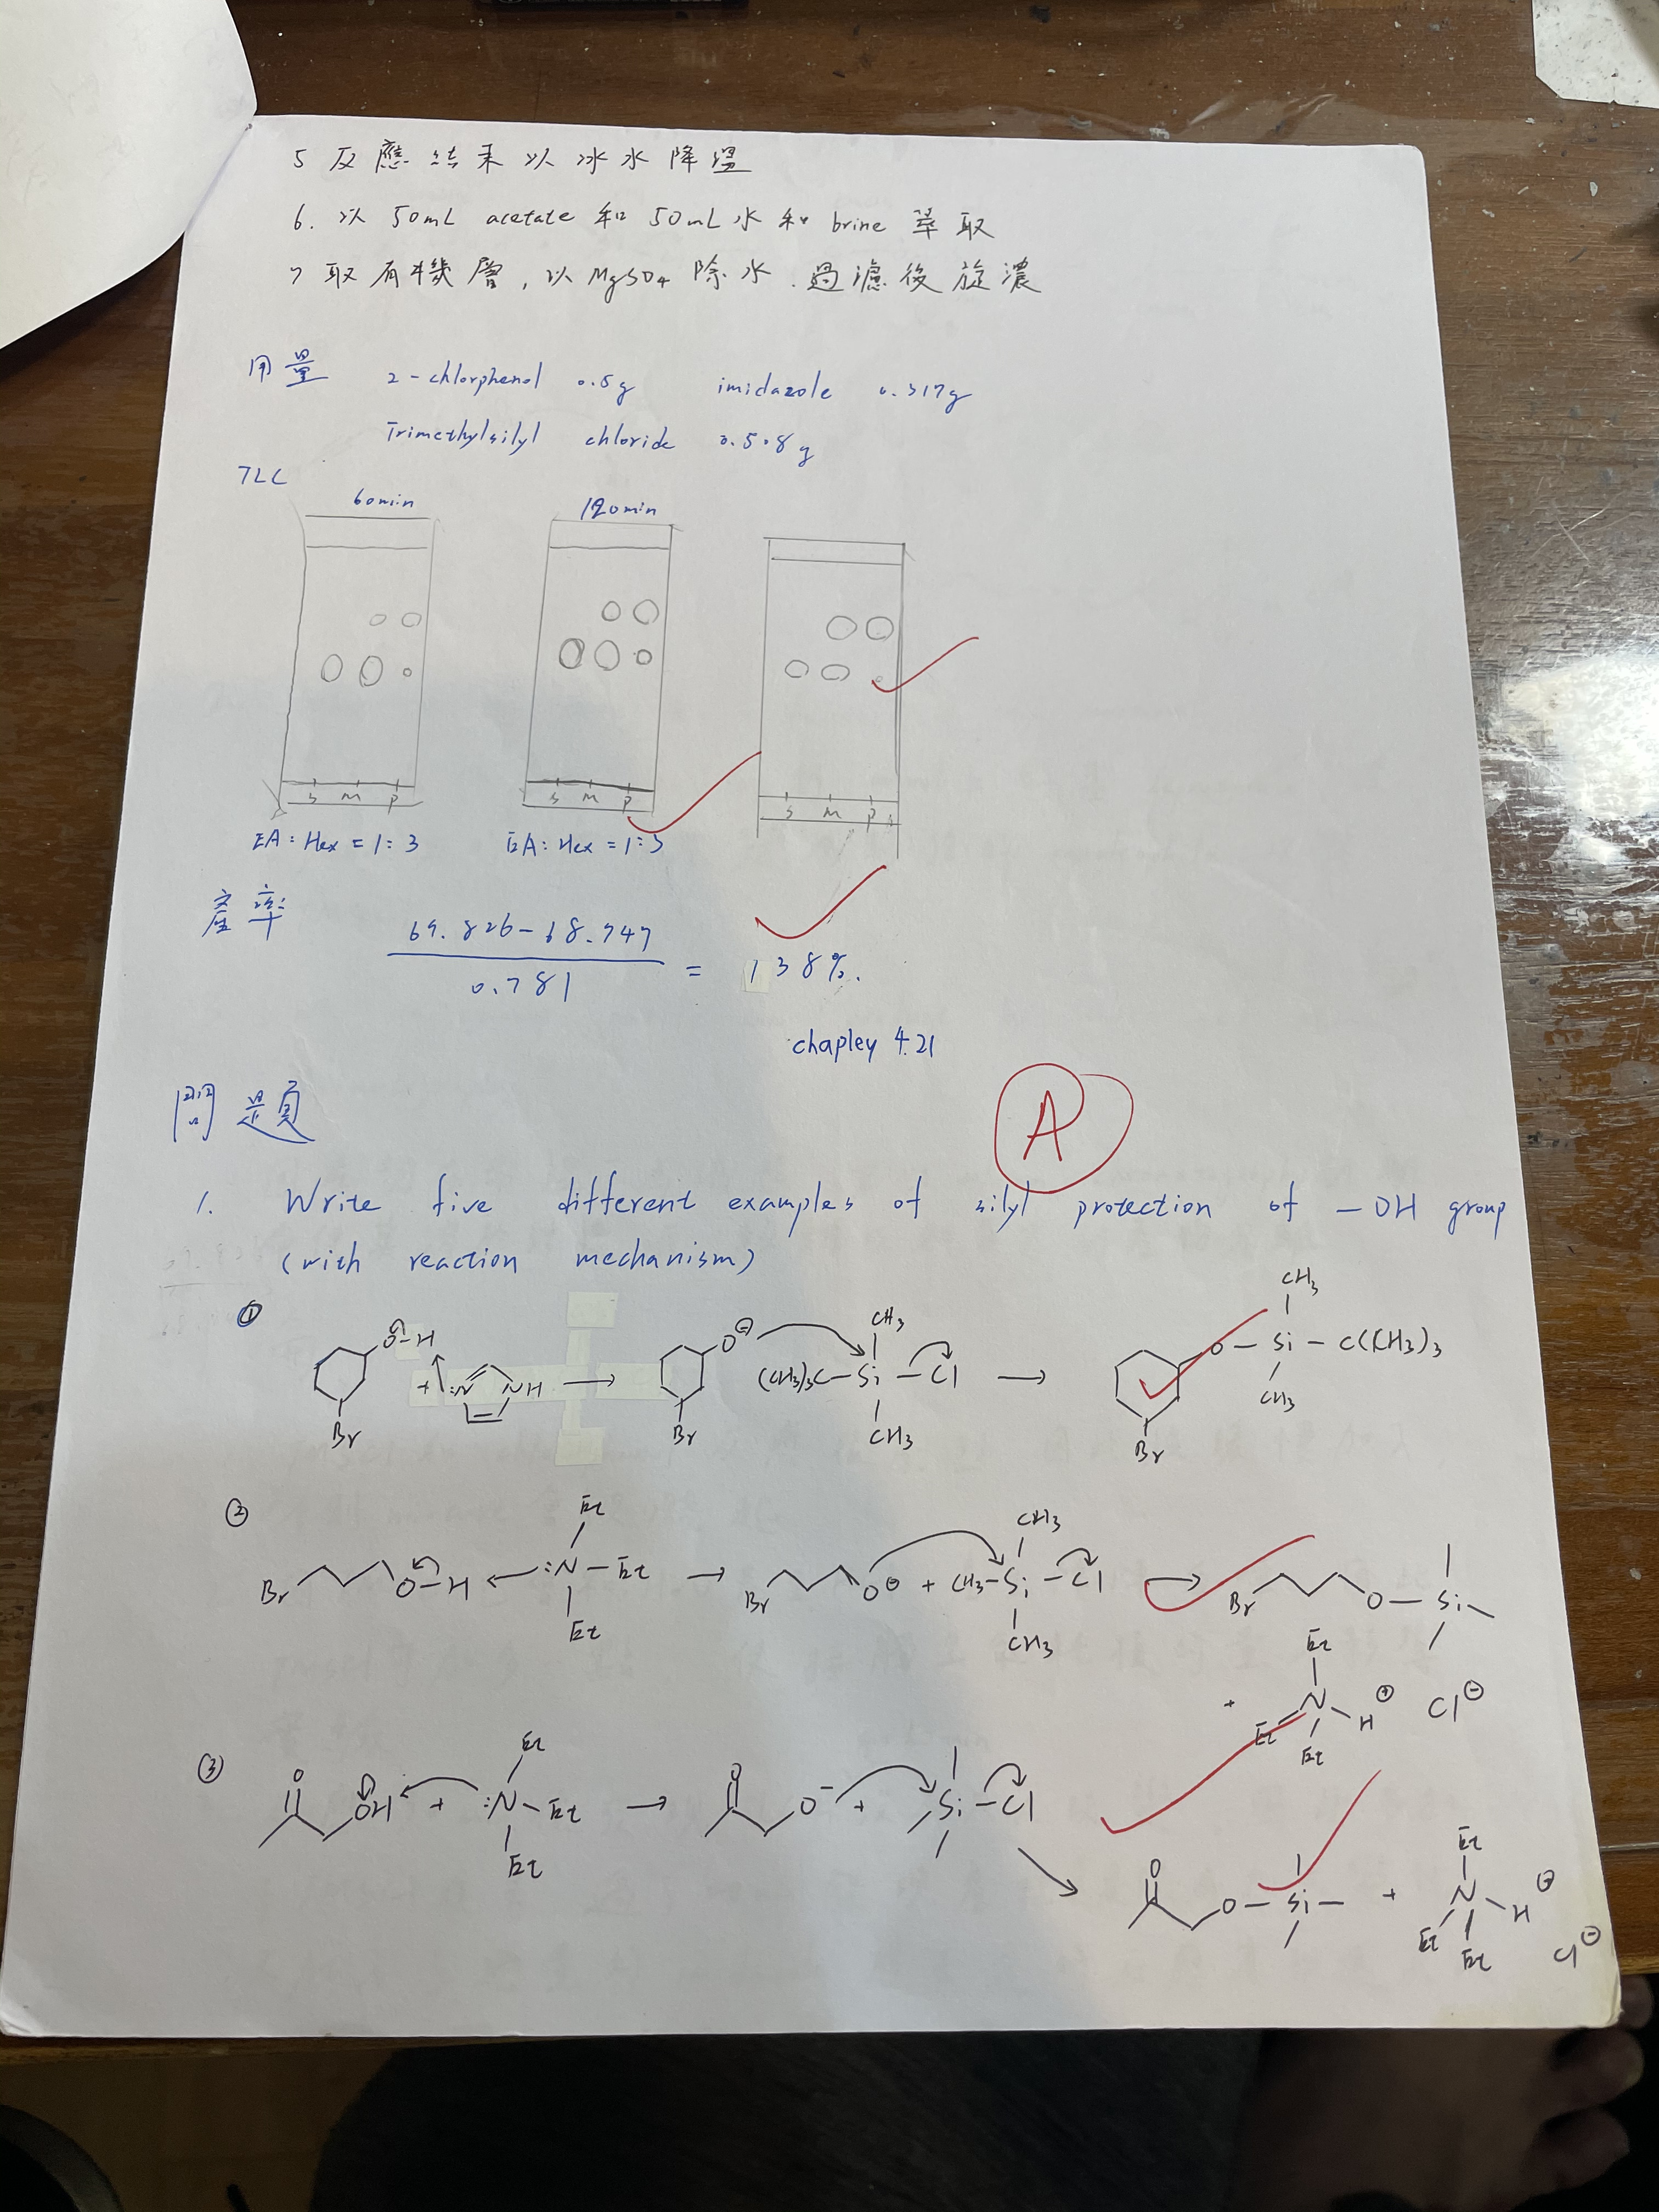 5 反應結束以冰水降溫
6. 以 50mL acetate 和 50mL 水和 brine 萃取
7 取有機層, 以 MgSO4 除水. 過濾後旋濃
用量 2-chlorphenol 0.5g imidazole 0.317g
Trimethylsilyl chloride 0.508g
TLC
60min 120min
S M P S M P S M P
EA: Hex = 1: 3 EA: Hex = 1:3
產率
69.826-68.747
0.781
= 138%.
chapley 4.21
A
問題
1. Write five different examples of silyl protection of -OH group
(with reaction mechanism)
①
O-H + :N NH Br
O⊖ Br (CH3)3C-Si-Cl CH3 CH3
O-Si-C(CH3)3 CH3 CH3 Br
②
Br O-H :N-Et Et Et
Br O⊖ + CH3-Si-Cl CH3 CH3
Br O-Si
+ Et N H ⊕ Et Et Cl⊖
③
O OH + :N-Et Et Et
O O- + Si-Cl
O O-Si- + Et N H ⊕ Et Et Cl⊖